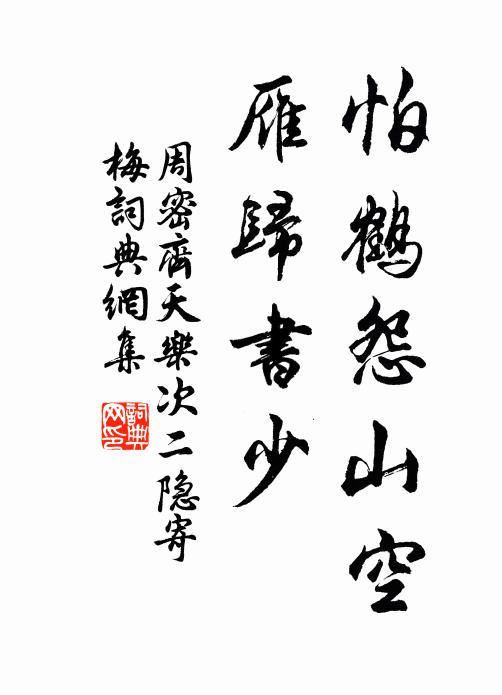 怕鹤怨山空
雁歸書少
周密齊天樂次二隐寄
梅詞典網集
詞典
网印